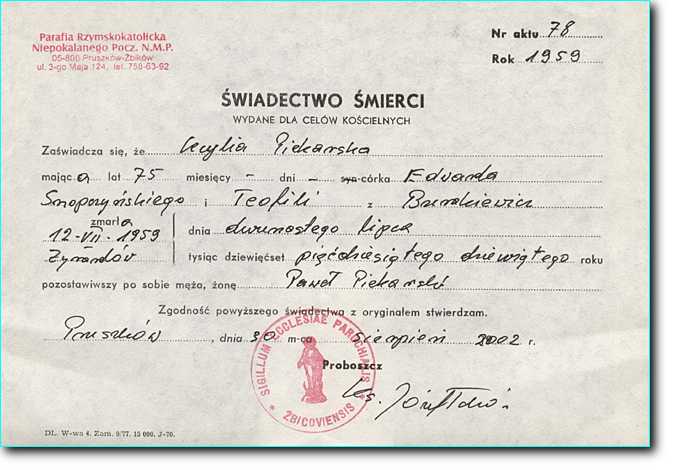 Parafia Rzymskokatolicka
Niepokalanego Pocz. N.M.P.
05-800 Pruszków-Żbików
ul. 3-go Maja 124, tel. 758-63-92
Nr aktu 78
Rok 1959
ŚWIADECTWO ŚMIERCI
WYDANE DLA CELÓW KOŚCIELNYCH
Zaświadcza się, że Cecylia Piekarska
mając a lat 75 miesięcy - dni - syn-córka Edwarda
i Teofili z
zmarła
12-VII-1959 dnia dwunastego lipca
Żyrardów tysiąc dziewięćset pięćdziesiątego dziewiątego roku
pozostawiwszy po sobie męża, żonę Paweł Piekarski
Zgodność powyższego świadectwa z oryginałem stwierdzam.
Pruszków, dnia 30 m-ca sierpień 2002 r.
SIGILLUM ECCLESIAE PAROCHIALIS
ZBICOVIENSIS
Proboszcz
Ks. Józef
DL. W-wa 4. Zam. 9/77. 15 000. J-70.